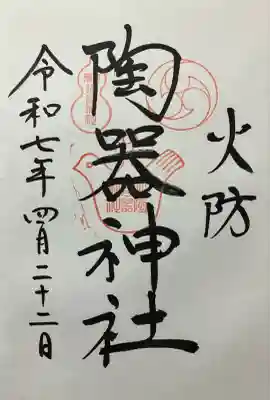 火防
陶器神社
令和七年四月二十二日